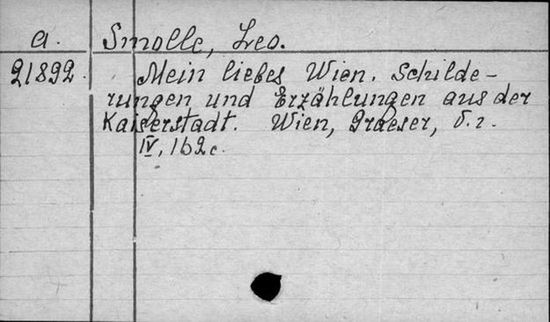 a. Smolle, Leo.
21892. Mein liebes Wien. Schilde-
rungen und Erzählungen aus der
Kaiserstadt. Wien, Graeser,
IV, 162